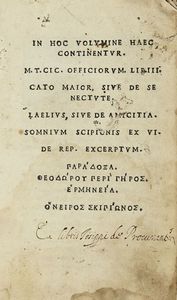 IN HOC VOLVMINE HAEC
CONTINENTVR.
M.T.CIC. OFFICIORVM. LIB.III.
CATO MAIOR, SIVE DE SE
NECTVTE.
LAELIVS, SIVE DE AMICITIA.
SOMNIVM SCIPIONIS EX VI.
DE REP. EXCERPTVM.
ΠΑΡΑΔΟΞΑ.
ΘΕΟΔΩΡΟΥ ΠΕΡΙ ΓΗΡΟΣ.
ΕΡΜΗΝΕΙΑ.
ΟΝΕΙΡΟΣ ΣΚΙΠΙΩΝΟΣ.
Ex libris